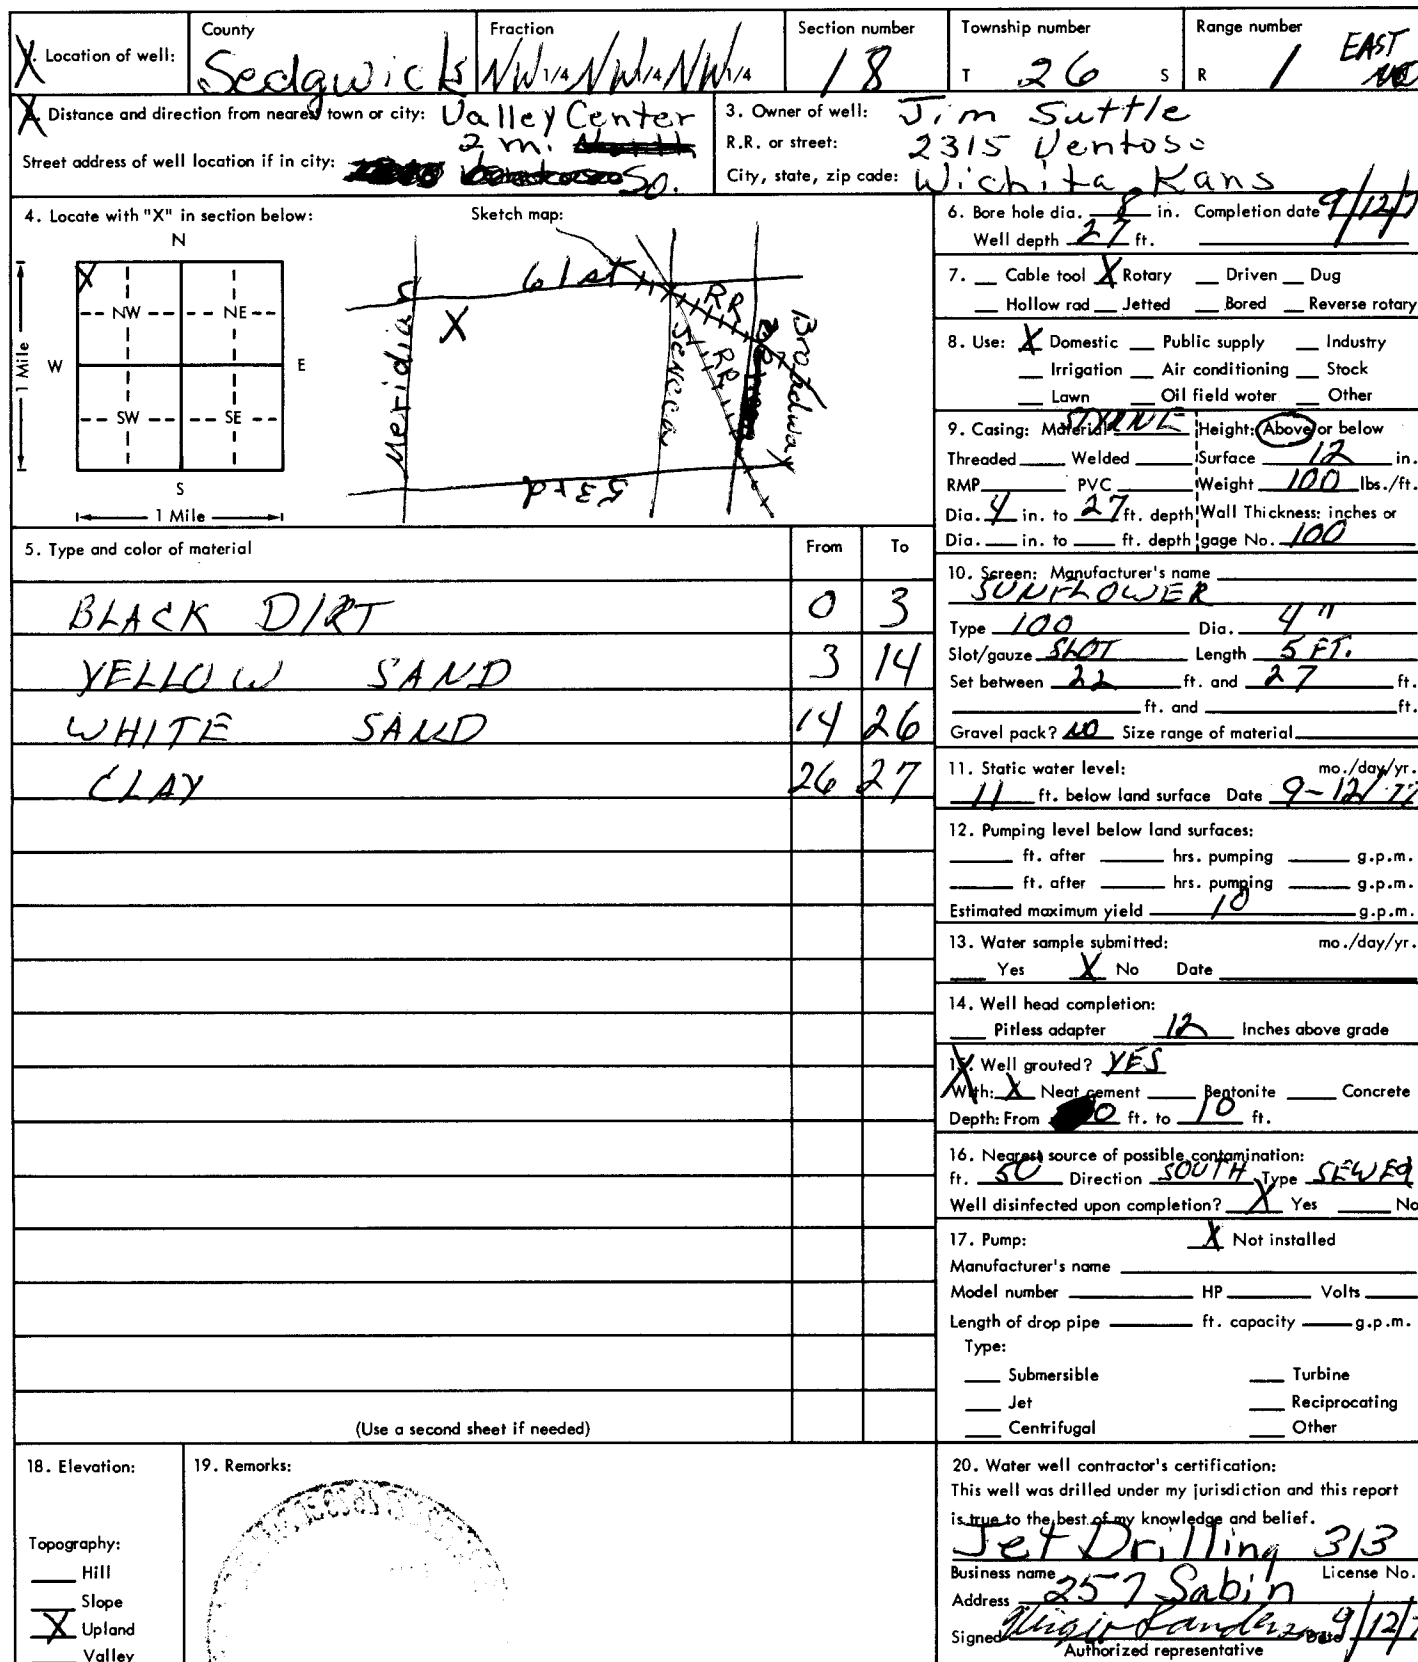 Location of well:
County
Sedgwick
Fraction
NW 1/4 NW 1/4 NW 1/4
Section number
18
Township number
T 26 S
Range number
R 1 EAST
Distance and direction from nearest town or city: Valley Center
2 mi. So.
Street address of well location if in city:
3. Owner of well: Jim Suttle
R.R. or street: 2315 Ventoso
City, state, zip code: Wichita, Kans
4. Locate with "X" in section below:
N
X
NW NE
W E
SW SE
S
1 Mile
1 Mile
Sketch map:
61st
Meridian
X
Seneca
RR
RR
Broadway
53rd
5. Type and color of material From To
BLACK DIRT 0 3
YELLOW SAND 3 14
WHITE SAND 14 26
CLAY 26 27
(Use a second sheet if needed)
6. Bore hole dia. 8 in. Completion date 9/12/7
Well depth 27 ft.
7. Cable tool X Rotary Driven Dug
Hollow rod Jetted Bored Reverse rotary
8. Use: X Domestic Public supply Industry
Irrigation Air conditioning Stock
Lawn Oil field water Other
9. Casing: Material Height: Above or below
Threaded Welded Surface 12 in.
RMP PVC Weight 100 lbs./ft.
Dia. 4 in. to 27 ft. depth Wall Thickness: inches or
Dia. in. to ft. depth gage No. 100
10. Screen: Manufacturer's name
SUNFLOWER
Type 100 Dia. 4"
Slot/gauze SLOT Length 5 FT.
Set between 22 ft. and 27 ft.
ft. and ft.
Gravel pack? NO Size range of material
11. Static water level: mo./day/yr.
11 ft. below land surface Date 9-12/77
12. Pumping level below land surfaces:
ft. after hrs. pumping g.p.m.
ft. after hrs. pumping g.p.m.
Estimated maximum yield 10 g.p.m.
13. Water sample submitted: mo./day/yr.
Yes X No Date
14. Well head completion:
Pitless adapter 12 Inches above grade
15. Well grouted? YES
With: X Neat cement Bentonite Concrete
Depth: From 0 ft. to 10 ft.
16. Nearest source of possible contamination:
ft. 50 Direction SOUTH Type SEWER
Well disinfected upon completion? X Yes No
17. Pump: X Not installed
Manufacturer's name
Model number HP Volts
Length of drop pipe ft. capacity g.p.m.
Type:
Submersible Turbine
Jet Reciprocating
Centrifugal Other
18. Elevation:
Topography:
Hill
Slope
X Upland
Valley
19. Remarks:
20. Water well contractor's certification:
This well was drilled under my jurisdiction and this report
is true to the best of my knowledge and belief.
Jet Drilling 313
Business name License No.
Address 257 Sabin
Signed Date 9/12/7
Authorized representative